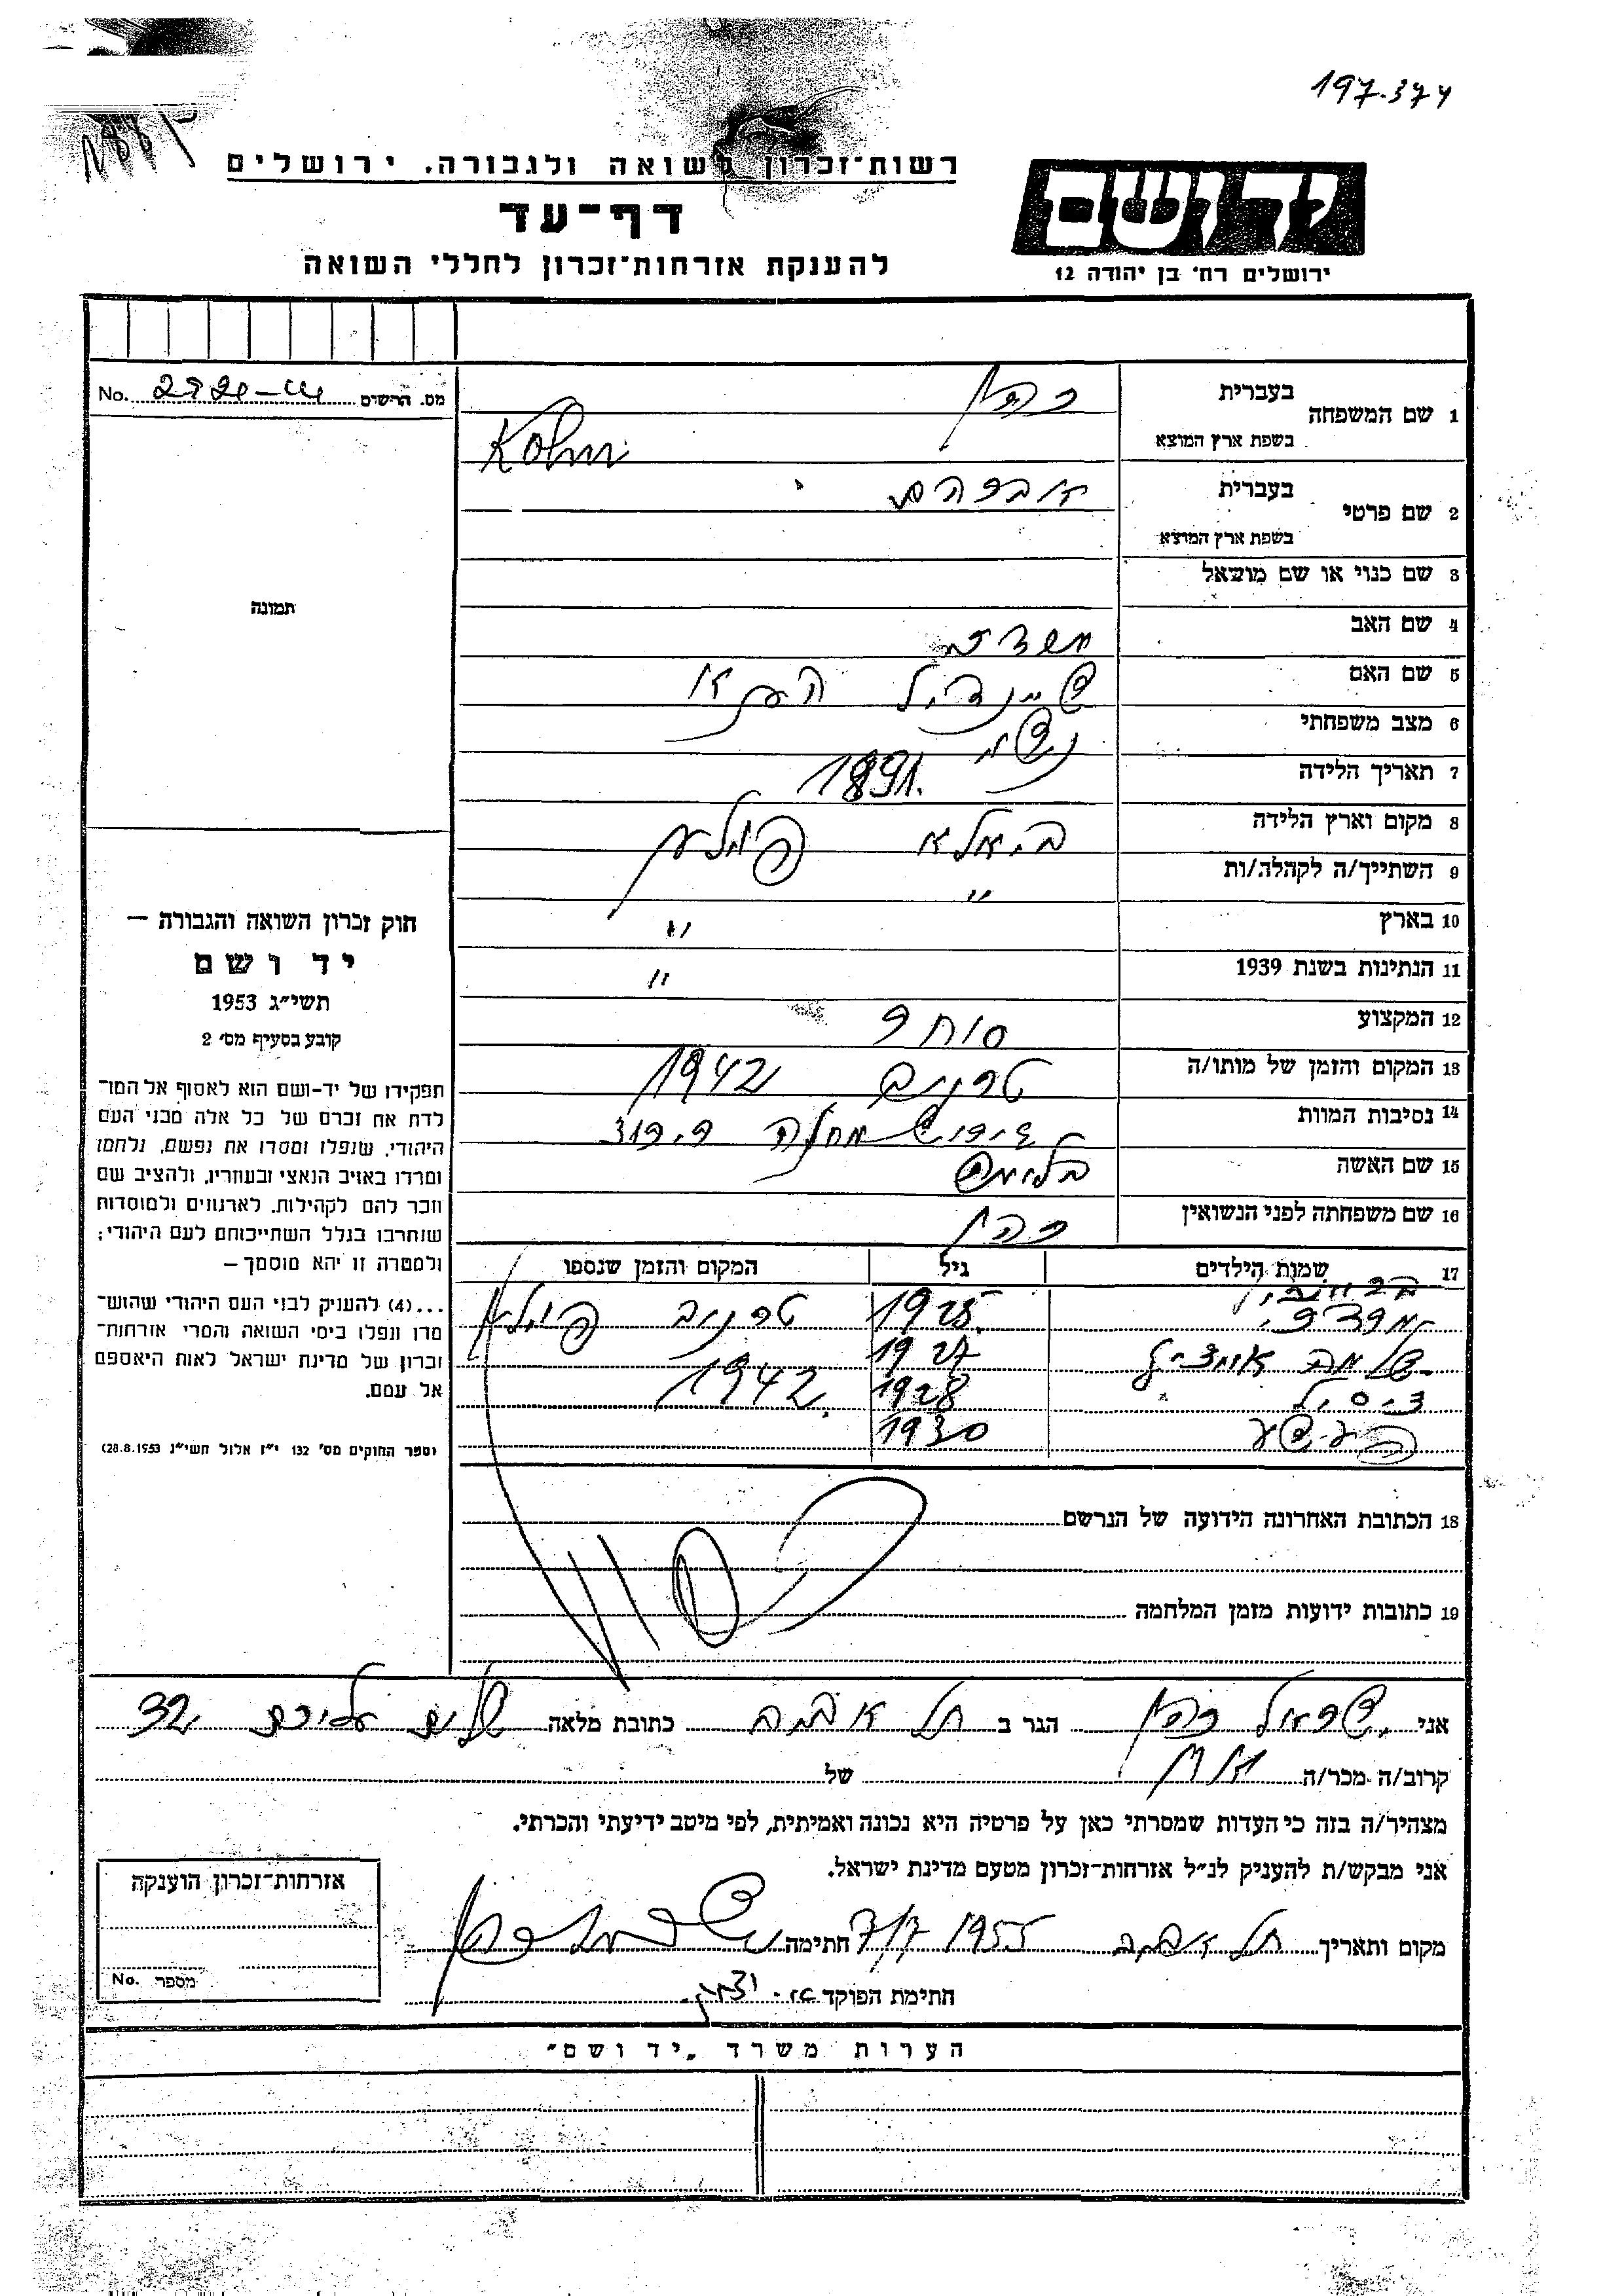 197.374
רשות־זכרון לשואה ולגבורה, ירושלים
דף־עד
להענקת אזרחות־זכרון לחללי השואה
יד ושם
ירושלים רח׳ בן יהודה 12
מס. הרשים No.
1 שם המשפחה
בעברית כהן
בשפת ארץ המוצא Kohn
2 שם פרטי
בעברית אברהם
בשפת ארץ המוצא
3 שם כנוי או שם מושאל
תמונה
4 שם האב
5 שם האם שיינדיל
6 מצב משפחתי נשוי
7 תאריך הלידה 1891.
8 מקום וארץ הלידה ביאלא פוילען
9 השתייך/ה לקהלה/ות "
10 בארץ "
11 הנתינות בשנת 1939 "
12 המקצוע סוחר
13 המקום והזמן של מותו/ה טרניב 1942
14 נסיבות המוות
15 שם האשה בלימה
16 שם משפחתה לפני הנשואין כהן
17 שמות הילדים גיל המקום והזמן שנספו
1925. טרניב פוילן
שלמה 1927
1928 1942.
1930
18 הכתובת האחרונה הידועה של הנרשם
19 כתובות ידועות מזמן המלחמה
חוק זכרון השואה והגבורה —
יד ושם
תשי״ג 1953
קובע בסעיף מס׳ 2
תפקידו של יד-ושם הוא לאסוף אל המו־
לדת את זכרם של כל אלה מבני העם
היהודי, שנפלו ומסרו את נפשם, נלחמו
ומרדו באויב הנאצי ובעוזריו, ולהציב שם
וזכר להם לקהילות, לארגונים ולמוסדות
שנחרבו בגלל השתייכותם לעם היהודי;
ולמטרה זו יהא מוסמך —
...(4) להעניק לבני העם היהודי שהוש־
מדו ונפלו בימי השואה והמרי אזרחות־
זכרון של מדינת ישראל לאות היאספם
אל עמם.
(ספר החוקים מס׳ 132 י״ז אלול תשי״ג 28.8.1953)
אני ישראל כהן הגר ב תל אביב כתובת מלאה שלום עליכם 32
קרוב/ה מכר/ה אח של
מצהיר/ה בזה כי העדות שמסרתי כאן על פרטיה היא נכונה ואמיתית, לפי מיטב ידיעתי והכרתי.
אני מבקש/ת להעניק לנ״ל אזרחות־זכרון מטעם מדינת ישראל.
מקום ותאריך תל אביב 7/7 1955 חתימה
חתימת הפוקד
אזרחות־זכרון הוענקה
מספר No.
הערות משרד „יד ושם״